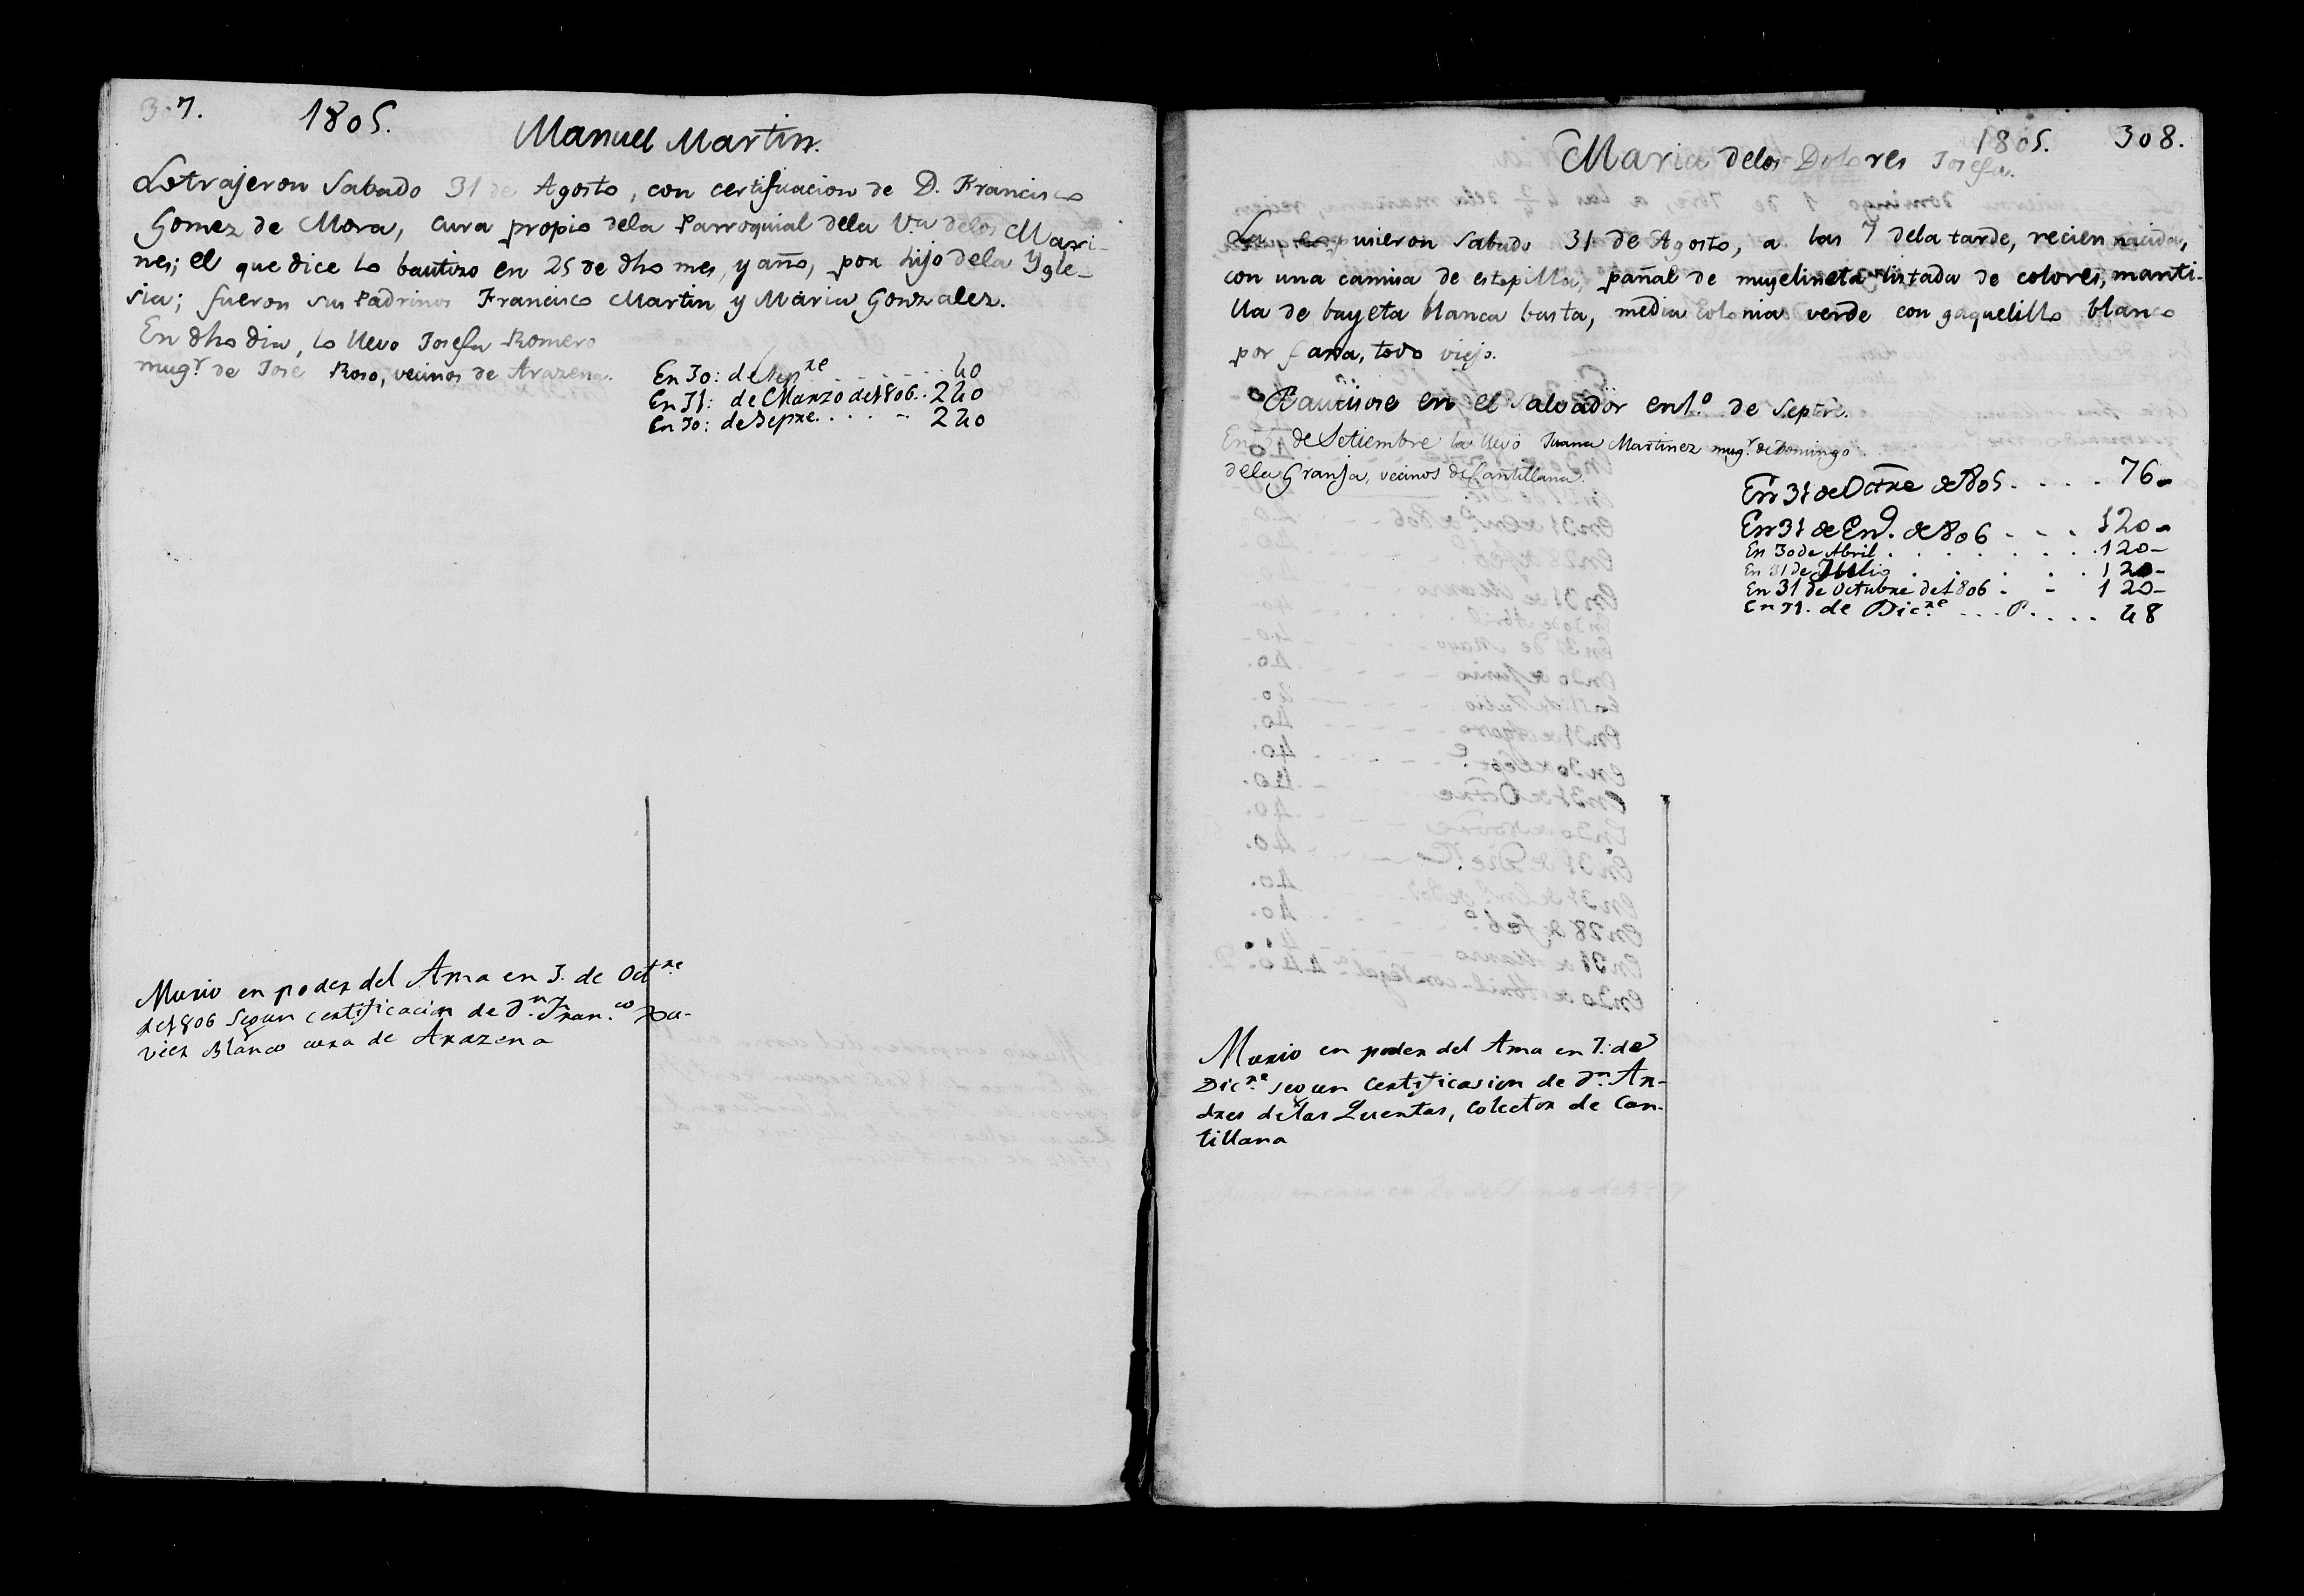 307.
1805.
Manuel Martin.
Lo trajeron Sabado 31 de Agosto, con certificacion de D. Francisco
Gomez de Mora, cura propio dela Parroquial dela Va. delos Mari-
nes; el que dice lo bautizo en 25 de dho mes, y año, por hijo dela Ygle-
sia; fueron sus Padrinos Francisco Martin y Maria Gonzalez.
En dho dia, lo llevo Josefa Romero
mugr. de José Roso, vecinos de Arazena.
En 30: de Sepre. . . . . 40
En 31: de Marzo de 1806. . 240
En 30: de Sepre. . . . - 240
Murio en poder del Ama en 3. de Octre.
de 1806 segun certificacion de Dn. Franco. Xa-
vier Blanco cura de Arazena
1805. 308.
Maria delos Dolores Josefa.
pusieron Sabado 31 de Agosto, a las 7 dela tarde, recien nacida,
con una camisa de estopilla, pañal de muselineta listada de colores, manti-
lla de bayeta blanca basta, media colonia verde con gaquelillo blanco
por faxa, todo viejo.
Bautisose en el Salvador en 1.º de Septre.
En de Setiembre la llevó Juana Martinez mugr. de Domingo
dela Granja, vecinos de Cantillana.
En 31 de Octre de 805. . . . . 76-
En 31 de Eno. de 806 - - - 120-
En 30 de Abril . . . . . . . 120-
En 31 de Julio . . . . . 120-
En 31 de Octubre de 1806 . - 120-
En 31. de Dicre. . . . . . . . 48
Murio en poder del Ama en 7. de
Dicre. segun certificasion de Dn. An-
dres de las Quentas, Colector de Can-
tillana